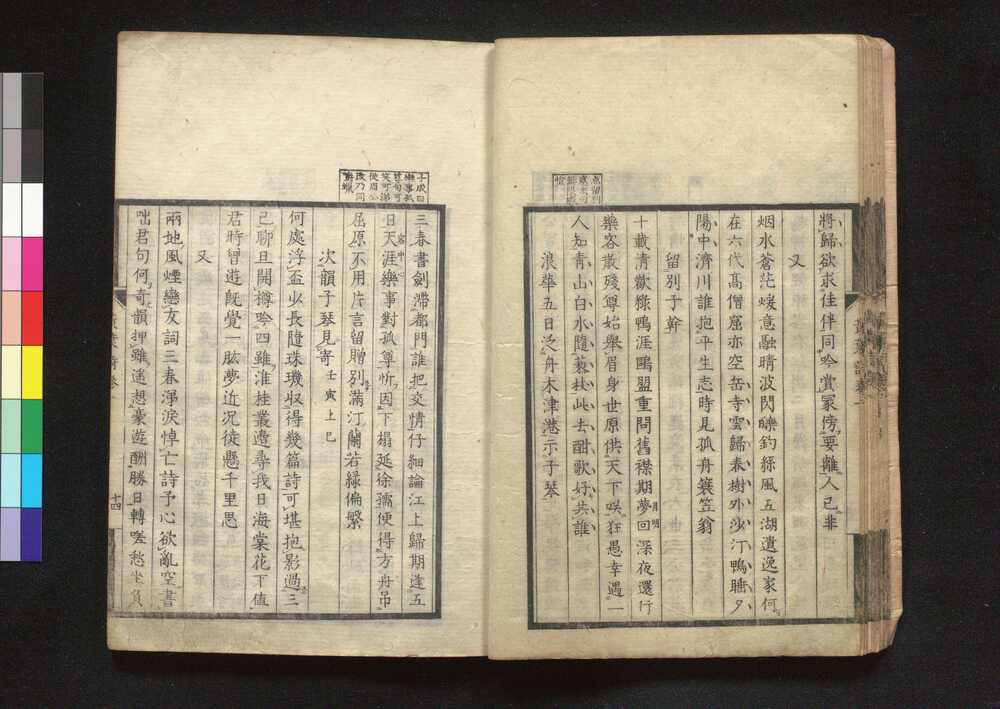 將歸欲求佳伴同吟賞冢傍要離人已非
又
烟水蒼茫煖意融晴波閃鑠釣絲風五湖遺逸家何
在六代高僧窟亦空岳寺雲歸春樹外沙汀鴨睡夕
陽中濟川誰抱平生志時見孤舟簑笠翁
留別子幹
十載清歡綠鴨涯鷗盟重問舊襟期夢回深夜還行
月明
樂客散殘尊始舉眉身世原供天下咲狂愚幸遇一
人知青山白水隨藜杖此去酣歌好共誰
浪華五日泛舟木津港示子琴
三春書劍滯都門誰把交情仔細論江上歸期逢五
日天涯樂事對孤尊忻因下榻延徐孺便得方舟吊
客中
屈原不用片言留贈別滿汀蘭若綠偏繁
次韻子琴見寄 壬寅上巳
何處浮盃少長隨珠璣収得幾篇詩可堪抱影過三
已聊且開樽吟四雖淮桂叢邊尋我日海棠花下值
君時曾遊旣覺一肱夢近況徒懸千里思
又
兩地風煙戀友詞三春淨淚悼亡詩予心欲亂空書
咄君句何奇韻押雖遙想豪遊酬勝日轉嗟愁坐負
十四